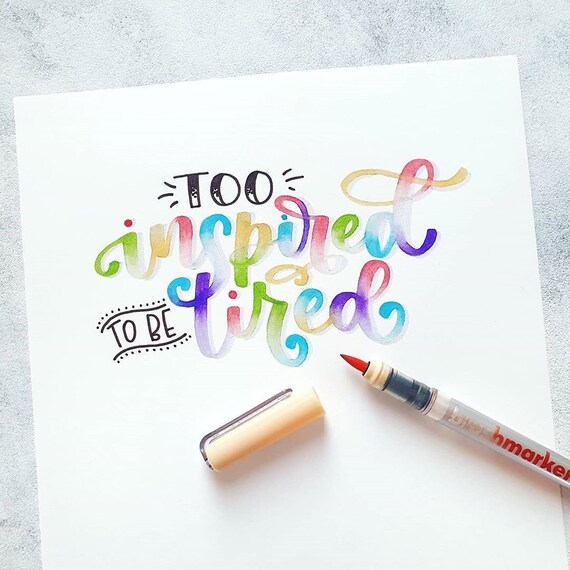 TOO
inspired
TO BE tired
brushmarker